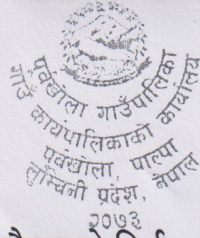 पूर्वखोला गाउँपालिका
गाउँ कार्यपालिकाको कार्यालय
पूर्वखोला, पाल्पा
लुम्बिनी प्रदेश, नेपाल
२०७३